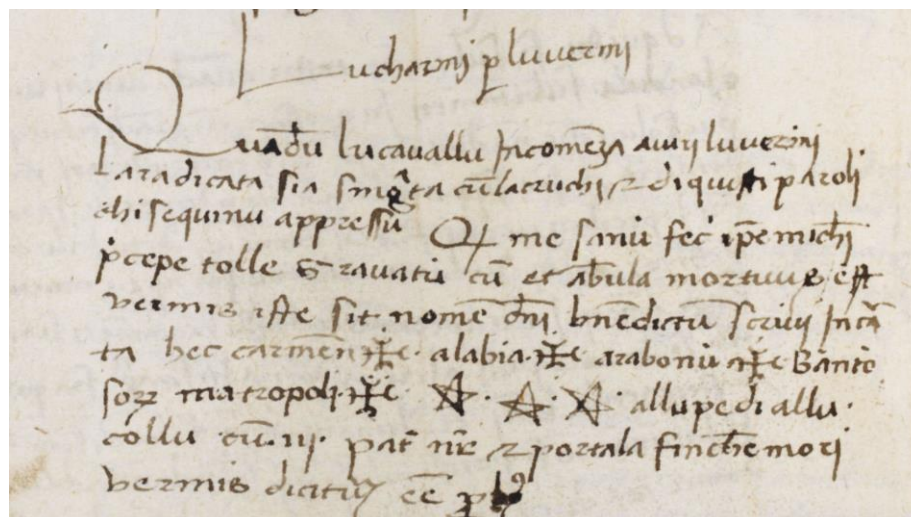 Lucharmj p luvermj
Quādu lu cauallu Incomēza auiri lu verinj
La radicata sia smgta cū la cruchi et di quisti paroli
chi sequinu appressu
Q me sanū fec ipe michi
p̄cepe tolle Gravatū cū et abula mortuus est
vermis iste sit nomē dnī bnēdictū scrivi Incā
ta hec carmen ✠ · alabia · ✠ araboniu ✠ Santo
matropoli · ✠ · ☆ · ☆ · ☆ · allu pedi allu ·
collu cū · iij · pat nr et portala finche mori
vermis dictus ee